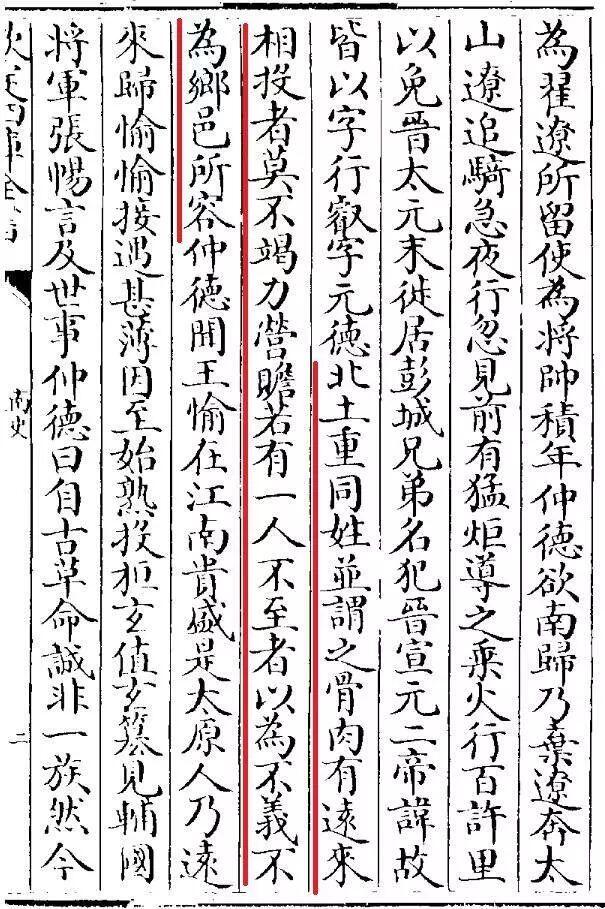 為翟遼所留使為將帥積年仲德欲南歸乃棄遼奔太
山遼追騎急夜行忽見前有猛炬導之乘火行百許里
以免晉太元末徙居彭城兄弟名犯晉宣元二帝諱故
皆以字行叡字元德北土重同姓並謂之骨肉有遠來
相投者莫不竭力營贍若有一人不至者以為不義不
為鄉邑所容仲德聞王愉在江南貴盛是太原人乃遠
來歸愉愉接遇甚薄因至始熟投桓玄值玄篡見輔國
將軍張暢言及世事仲德曰自古草命誠非一族然今
南史
二